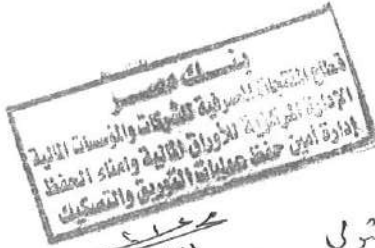 بنك مصر
قطاع المنتجات المصرفية للشركات والمؤسسات المالية
الإدارة المركزية للأوراق المالية وأمناء الحفظ
إدارة أمين حفظ عمليات التوريق والتصكيك